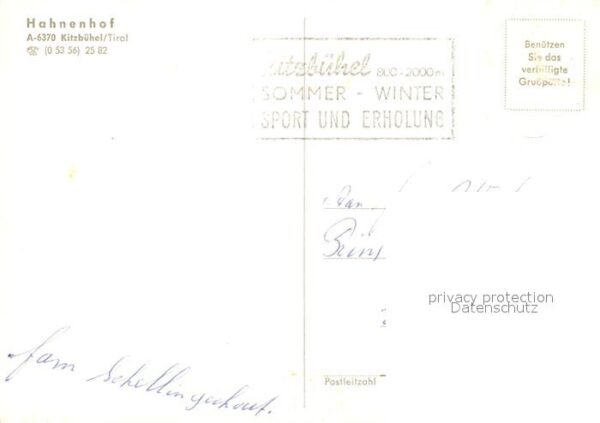 Hahnenhof
A-6370 Kitzbühel/Tirol
☎ (0 53 56) 25 82
Kitzbühel 800-2000m
SOMMER - WINTER
SPORT UND ERHOLUNG
Benützen
Sie das
verbilligte
Grußporto!
Aan
privacy protection
Datenschutz
Postleitzahl
fam Schellingerhout.